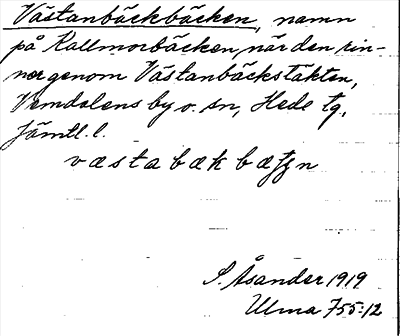 Västanbäckbäcken, namn
på Kallmorbäcken, när den rin-
ner genom Västanbäckstäkten,
Vemdalens by o. sn, Hede tg,
Jämtl. l.
væstabækbæʃɟn
S. Åsander 1919
Ulma 755:12